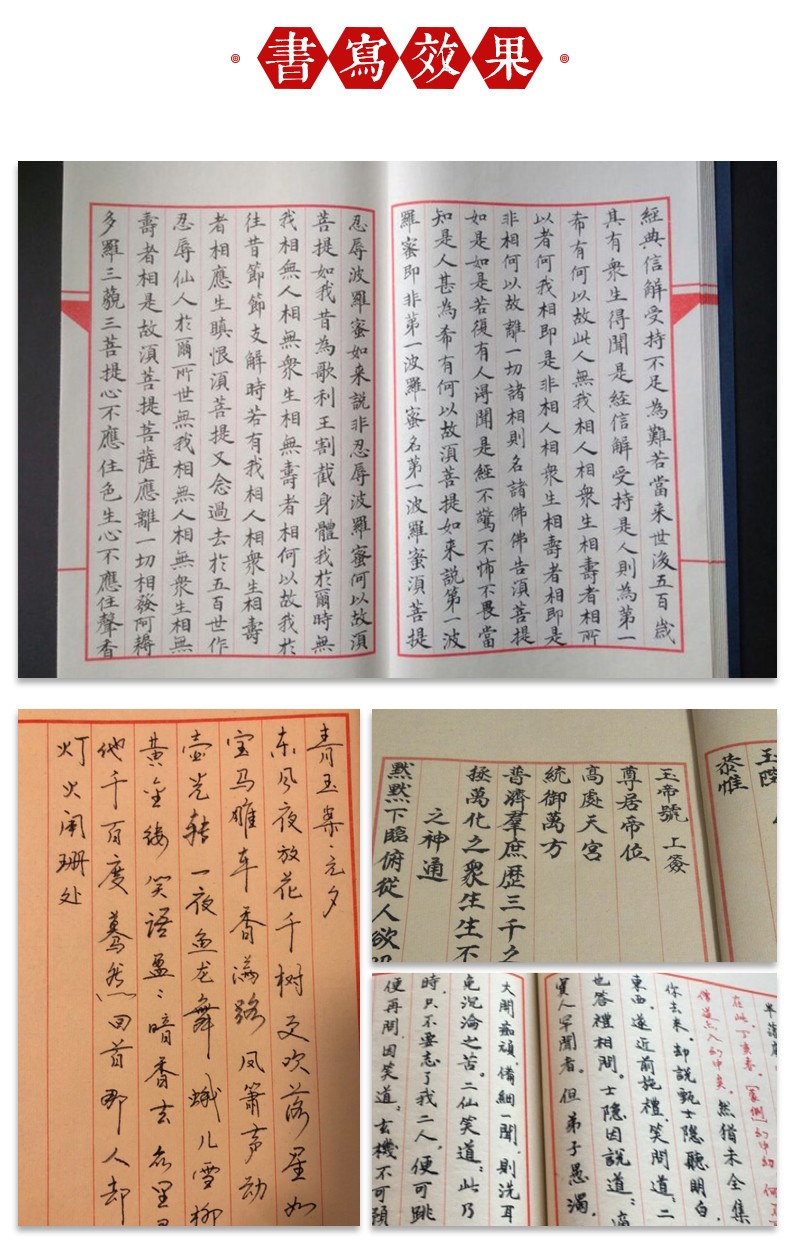 書寫效果
經典信解受持不足為難若當来世後五百歲
其有衆生得聞是經信解受持是人則為第一
希有何以故此人無我相人相衆生相壽者相所
以者何我相即是非相人相衆生相壽者相即是
非相何以故離一切諸相則名諸佛佛告湏菩提
如是如是若復有人得聞是經不驚不怖不畏當
知是人甚為希有何以故湏菩提如来說第一波
羅蜜即非第一波羅蜜名第一波羅蜜湏菩提
忍辱波羅蜜如来說非忍辱波羅蜜何以故湏
菩提如我昔為歌利王割截身體我於爾時無
我相無人相無衆生相無壽者相何以故我於
往昔節節支解時若有我相人相衆生相壽
者相應生瞋恨湏菩提又念過去於五百世作
忍辱仙人於爾所世無我相無人相無衆生相無
壽者相是故湏菩提菩薩應離一切相發阿耨
多羅三藐三菩提心不應住色生心不應住聲香
青玉案·元夕
东风夜放花千树更吹落星如
宝马雕车香满路凤箫声动
壶光转一夜鱼龙舞蛾儿雪柳
黄金缕笑语盈盈暗香去众里
他千百度蓦然回首那人却
灯火阑珊处
玉陛
恭惟
玉帝號 上簽
尊居帝位
高處天宮
統御萬方
普濟羣庶歷三千之
拯萬化之衆生生不
之神通
默默下臨俯從人欲
在此。丁亥春。
然猶未全集
你去来。却說甄士隱聽明白，
東西，遂近前施禮，笑問道：二
也答禮相問。士隱因說道：適
實人罕聞者。但弟子愚濁，
大開痴頑，備細一聞，則洗耳
免沉淪之苦。二仙笑道：此乃
時，只不要忘了我二人，便可跳
便再問，因笑道：玄機不可預